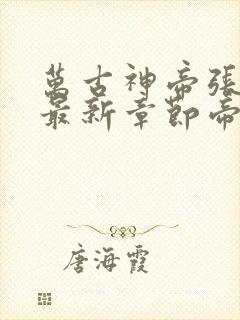 萬古神帝張
最新章節帝
唐海霞